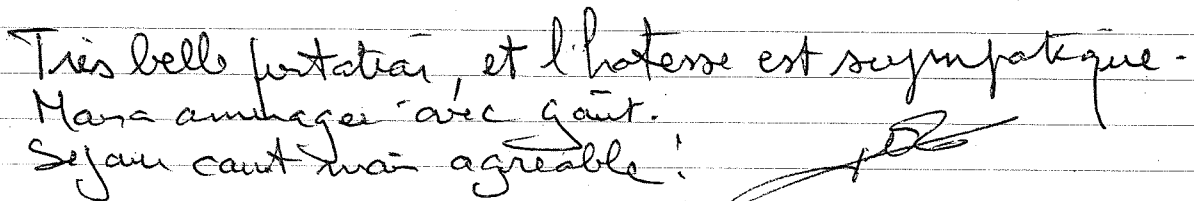 Très belle prestation, et l'hotesse est sympatique.
Maison aménagée avec goût.
Séjour court mais agréable !